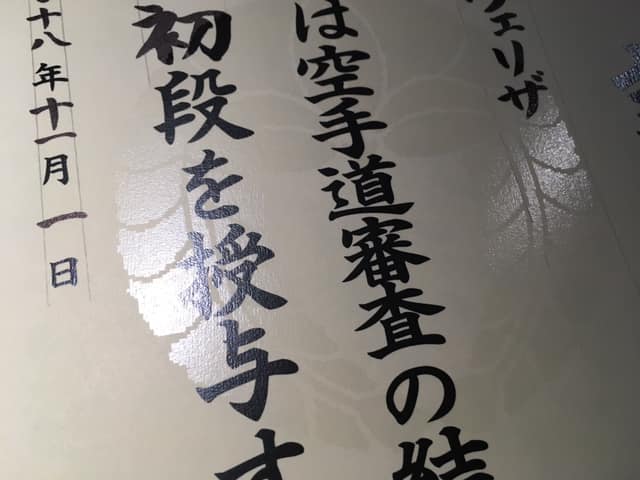 ェリザ
は空手道審査の結
初段を授与す
十八年十一月一日